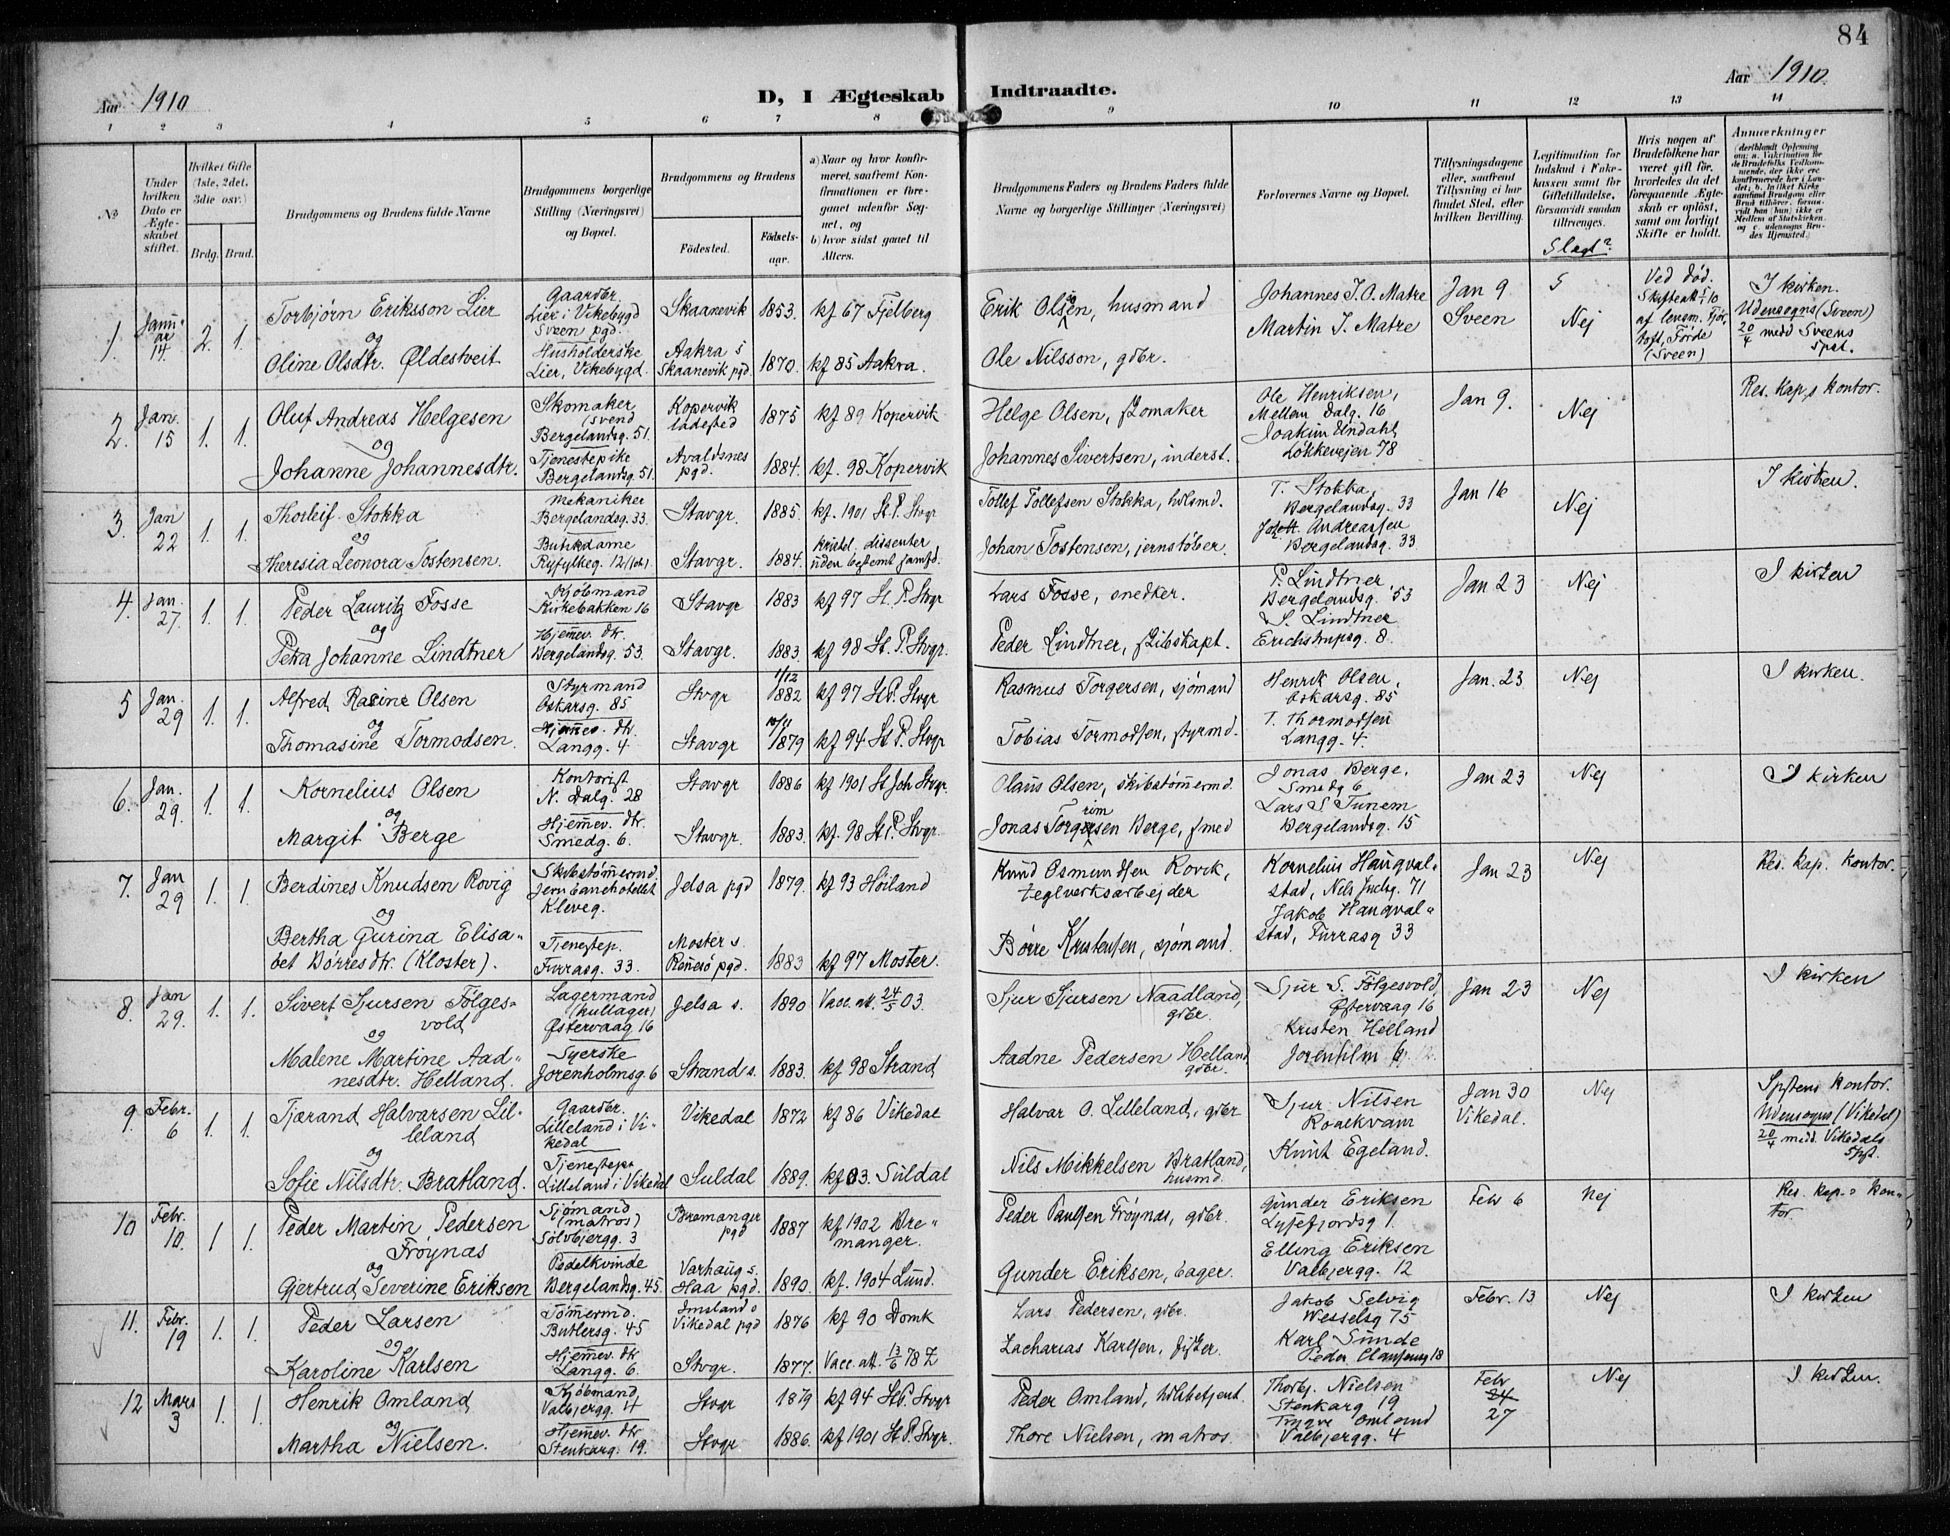 84
Aar 1910
D, I Ægteskab Indtraadte.
Aar 1910.
1 2 3 4 5 6 7 8 9 10 11 12 13 14
No
Under hvilken Dato er Ægteskabet stiftet.
Hvilket Gifte (1ste, 2det, 3die osv.)
Brdg. Brud.
Brudgommens og Brudens fulde Navne
Brudgommens borgerlige Stilling (Næringsvei) og Bopæl.
Brudgommens og Brudens
Fødested.
Fødselsaar.
a) Naar og hvor konfirmeret, saafremt Konfirmationen er foregaaet udenfor Sognet, og
b) hvor sidst gaaet til Alters.
Brudgommens Faders og Brudens Faders fulde Navne og borgerlige Stillinger (Næringsvei)
Forlovernes Navne og Bopæl.
Tillysningsdagene eller, saafremt Tillysning ei har fundet Sted, efter hvilken Bevilling.
Legitimation for Indskud i Enkekassen samt for Giftetilladelse, forsaavidt saadan tiltrænges.
Slægt?
Hvis nogen af Brudefolkene har været gift før, hvorledes da det foregaaende Ægteskab er opløst, samt om lovligt Skifte er holdt.
Anmærkninger
(deriblandt Oplysning om: a. Vakcination for de Brudefolks Vedkommende, der ikke ere konfirmerede her i Landet; b. hvilket Kirkesamfund Brudgom eller Brud tilhører, forsaavidt han (hun) ikke er Medlem af Statskirken, og c. udensogns Brudes Hjemsted.)
1. Januar 14 2. 1.
Torbjørn Eriksson Lier
og
Oline Olsdtr. Øldestveit
Gaardbr. Lier i Vikebygd Sveen pgd.
Husholderske Lier, Vikebygd.
Skaanevik 1853. kf 67 Fjelberg
Aakra s Skaanevik pgd. 1870. kf 85 Aakra.
Erik Olsen, husmand
Ole Nilsson, gdbr.
Johannes J. O. Matre
Martin J. Matre
Jan 9 Sveen
Nej
Ved død.
(Sveen)
I kirken.
Udensogns (Sveen)
20/4 medd Sveens spst.
2. Jan. 15 1. 1.
Oluf Andreas Helgesen
og
Johanne Johannesdtr.
Skomaker (svend Bergelandsg. 51.
Tjenestepike Bergelandsg. 51.
Kopervik ladested 1875 kf 89 Kopervik
Avaldsnes pgd. 1884. kf. 98 Kopervik
Helge Olsen, skomaker
Johannes Sivertsen, inderst.
Ole Henriksen, Mellem Dalg. 16
Joakim Undahl, Løkkevejen 78
Jan 9.
Nej
Res. Kap.s kontor.
3. Jan 22 1. 1.
Thorleif Stokka
og
Theresia Leonora Tostensen.
Mekaniker Bergelandsg. 33.
Butikdame Ryfylkeg. 12
Stavgr. 1885. kf. 1901 St. P. Stvgr
Stavgr. 1884. dissenter uden bestemt samfd.
Tollef Tollefsen Stokka, hvlsmd.
Johan Tostensen, jernstøber.
T. Stokka, Bergelandsg. 33
Andreassen Bergelandsg. 33
Jan 16
Nej
I kirken.
4. Jan. 27. 1. 1.
Peder Lauritz Fosse
og
Petra Johanne Lindtner
Kjøbmand Kirkebakken 16
Hjemmev. dtr. Bergelandsg. 53.
Stavgr 1883 kf 97 St. P. Stvgr
Stavgr. 1883. kf 98 St. P. Stvgr.
Lars Fosse, snedker.
Peder Lindtner, skibskapt.
P. Lindtner, Bergelandsg. 53
S. Lindtner Erichstrupsg. 8.
Jan 23
Nej
I kirken
5 Jan. 29 1. 1.
Alfred Rasine Olsen
og
Thomasine Tormodsen.
Styrmand Oskarsg. 85
Hjemmev. dtr. Langg. 4.
Stvgr 1/12 1882 kf 97 St P. Stvgr
Stavgr 1879 kf 94 St P. Stvgr
Rasmus Torgersen, sjømand
Tobias Tormodsen, styrmd.
Henrik Olsen, Oskarsg. 85
T. Thormodsen Langg. 4.
Jan. 23
Nej
I kirken.
6. Jan. 29. 1. 1.
Kornelius Olsen
og
Margit Berge
Kontorist N. Dalg. 28
Hjemmev. dtr. Smedg. 6.
Stavgr 1886 kf 1901 St Joh Stvgr.
Stavgr. 1883. kf. 98 St P. Stvgr.
Olaus Olsen, skibstømmermd.
Jonas Torgersen Berge, smed
Jonas Berge, Smedg 6
Lars S Tunem Bergelandsg. 15
Jan 23
Nej
I kirken
7. Jan 29 1. 1.
Berdines Knudsen Rovig
og
Bertha Gurina Elisabet Børresdtr. (Kloster).
Skibstømmermd. Jernbanehotellet Kleveg.
Tjenestep. Furrasg. 33.
Jelsa pgd 1879. kf 93 Høiland
Moster s. Rennesø pgd. 1883 kf 97 Moster.
Knud Osmundsen Rovik, teglverksarbejder
Børre Kristensen, sjømand.
Kornelius Haugvalstad, Nils Juelsg. 71
Jakob Haugvalstad, Furrasg 33
Jan 23
Nej
Res. Kap. kontor.
8. Jan 29. 1. 1.
Sivert Sjursen Følgesvold
og
Malene Martine Aadnesdtr. Helland.
Lagermand (kullager) Østervaag 16
Syerske Jorenholmsg. 6
Jelsa s. 1890 Vacc. att. 24/5 03.
Strand s. 1883. kf 98 Strand
Sjur Sjursen Naadland, gdbr.
Aadne Pedersen Helland gdbr.
Sjur S. Følgesvold, Østervaag 16
Kristen Helland Jorenholm
Jan 23
Nej
I kirken
9. Febr. 6 1. 1.
Tjærand Halvarsen Lilleland
og
Sofie Nilsdtr. Bratland.
Gaardbr. Lilleland i Vikedal
Tjenestepi Lilleland i Vikedal
Vikedal 1872 kf 86 Vikedal
Suldal 1889. kf 03. Suldal
Halvar O. Lilleland, gdbr
Nils Mikkelsen Bratland, husmd.
Sjur Nilsen Roalkvam
Knut Egeland.
Jan 30 Vikedal.
Nej
Spstens kontor.
Udensogns (Vikedal)
20/4 medd. Vikedals Spst.
10 Febr. 10. 1 1.
Peder Martin Pedersen Frøynas
og
Gjertrud Severine Eriksen
Sjømand (matros) Sølvbjergg. 3
Bergelandsg. 45.
Bremanger pgd 1887 kf 1902 Bremanger.
Varhaug s. Haa pgd. 1890. kf. 1904 Lund.
Peder Paulsen Frøynas, gdbr.
Gunder Eriksen, bager.
Gunder Eriksen Lysefjordsg 1.
Elling Eriksen Valbjergg. 12
Febr 6
Nej
Res. kap.s kontor.
11. Febr. 19 1. 1.
Peder Larsen
og
Karoline Karlsen
Tømmermd. Butlersg. 45
Hjemmev. dtr Langg. 6.
Imsland s Vikedal pgd 1876 kf 90 Domk
Stvgr. 1877. Vacc. att. 13/6 78
Lars Pedersen, gdbr.
Zacharias Karlsen, fisker.
Jakob Selvig Wesselsg 75
Karl Sunde Peder Clausensg 18
Febr. 13
Nej
I kirken
12 Mars 3 1. 1.
Henrik Omland
og
Martha Nielsen.
Kjøbmand, Valbjergg. 4
Hjemmev. dtr Stenkarg. 19.
Stvgr 1879 kf 94 St P. Stvgr
Stvgr 1886. kf 1901 St P. Stvgr.
Peder Omland,
Thore Nielsen, matros
Thorbj. Nielsen Stenkarg 19
Trygve Omland Valbjergg. 4
Febr 24 27
Nej
I kirken.